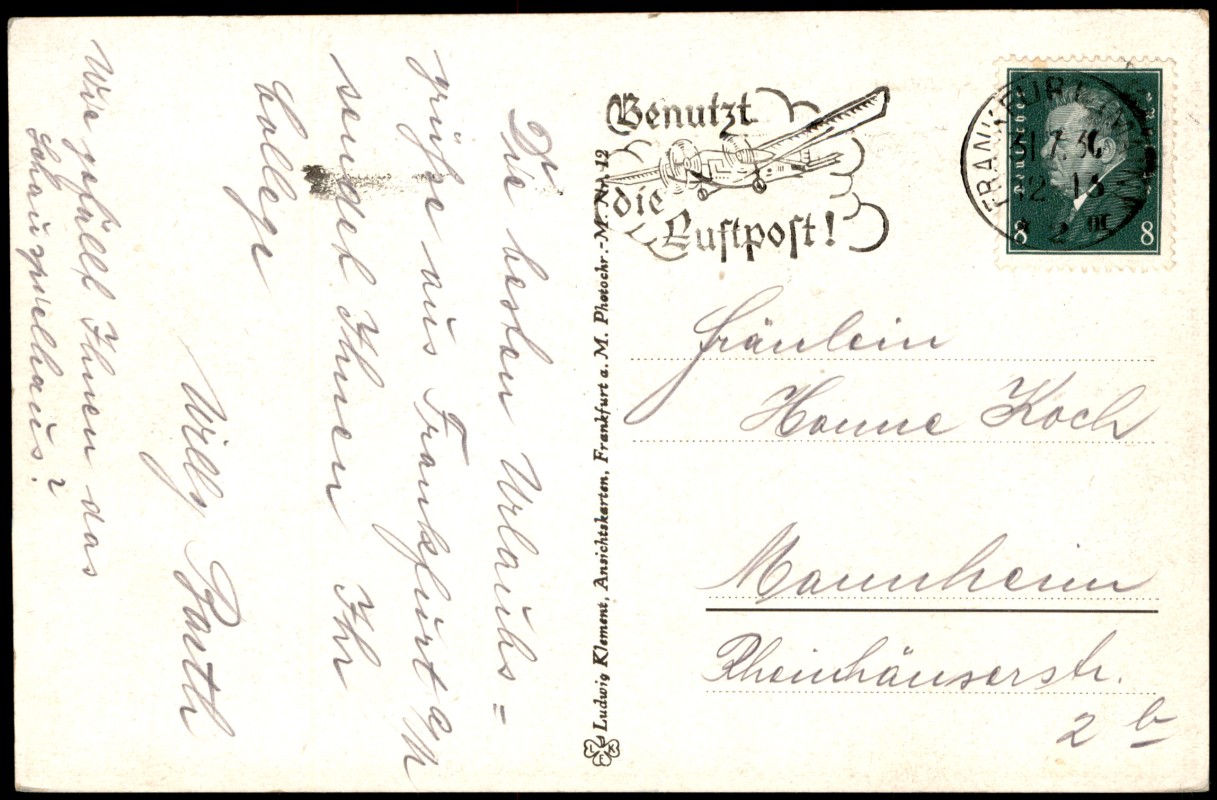 Die besten Urlaubs=
grüße aus Frankfurt a/M
sendet Ihnen Ihr
College
Willy Barth
Wie gefällt Ihnen das
Schauspielhaus?
Ludwig Klement, Ansichtskarten, Frankfurt a. M. Photochr.-M. Nr. 12
LKF
Benutzt
die
Luftpost!
FRANKFURT
31.7.36
12
8 8
Fräulein
Hanne Koch
Mannheim
Rheinhäuserstr.
2 b